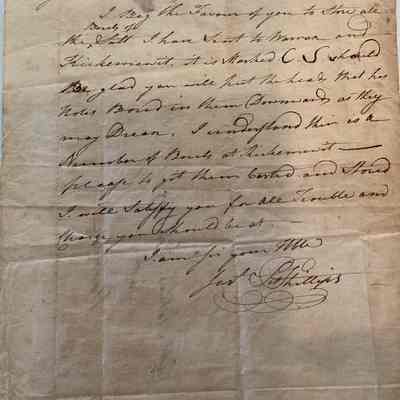 I Beg the Favour of you to Store all
Barels of
the Salt I have Sent to Warran and
it is Marked C. S should
Be glad you will put the heads that has
holes Bored in them Downwards as they
may Drean. I understand their is a
Number of Barels at
please to get them Carted and Stored
I will Satisfy you for all Trouble and
Charge you should be at —
I am Sir your Hble
Phillips